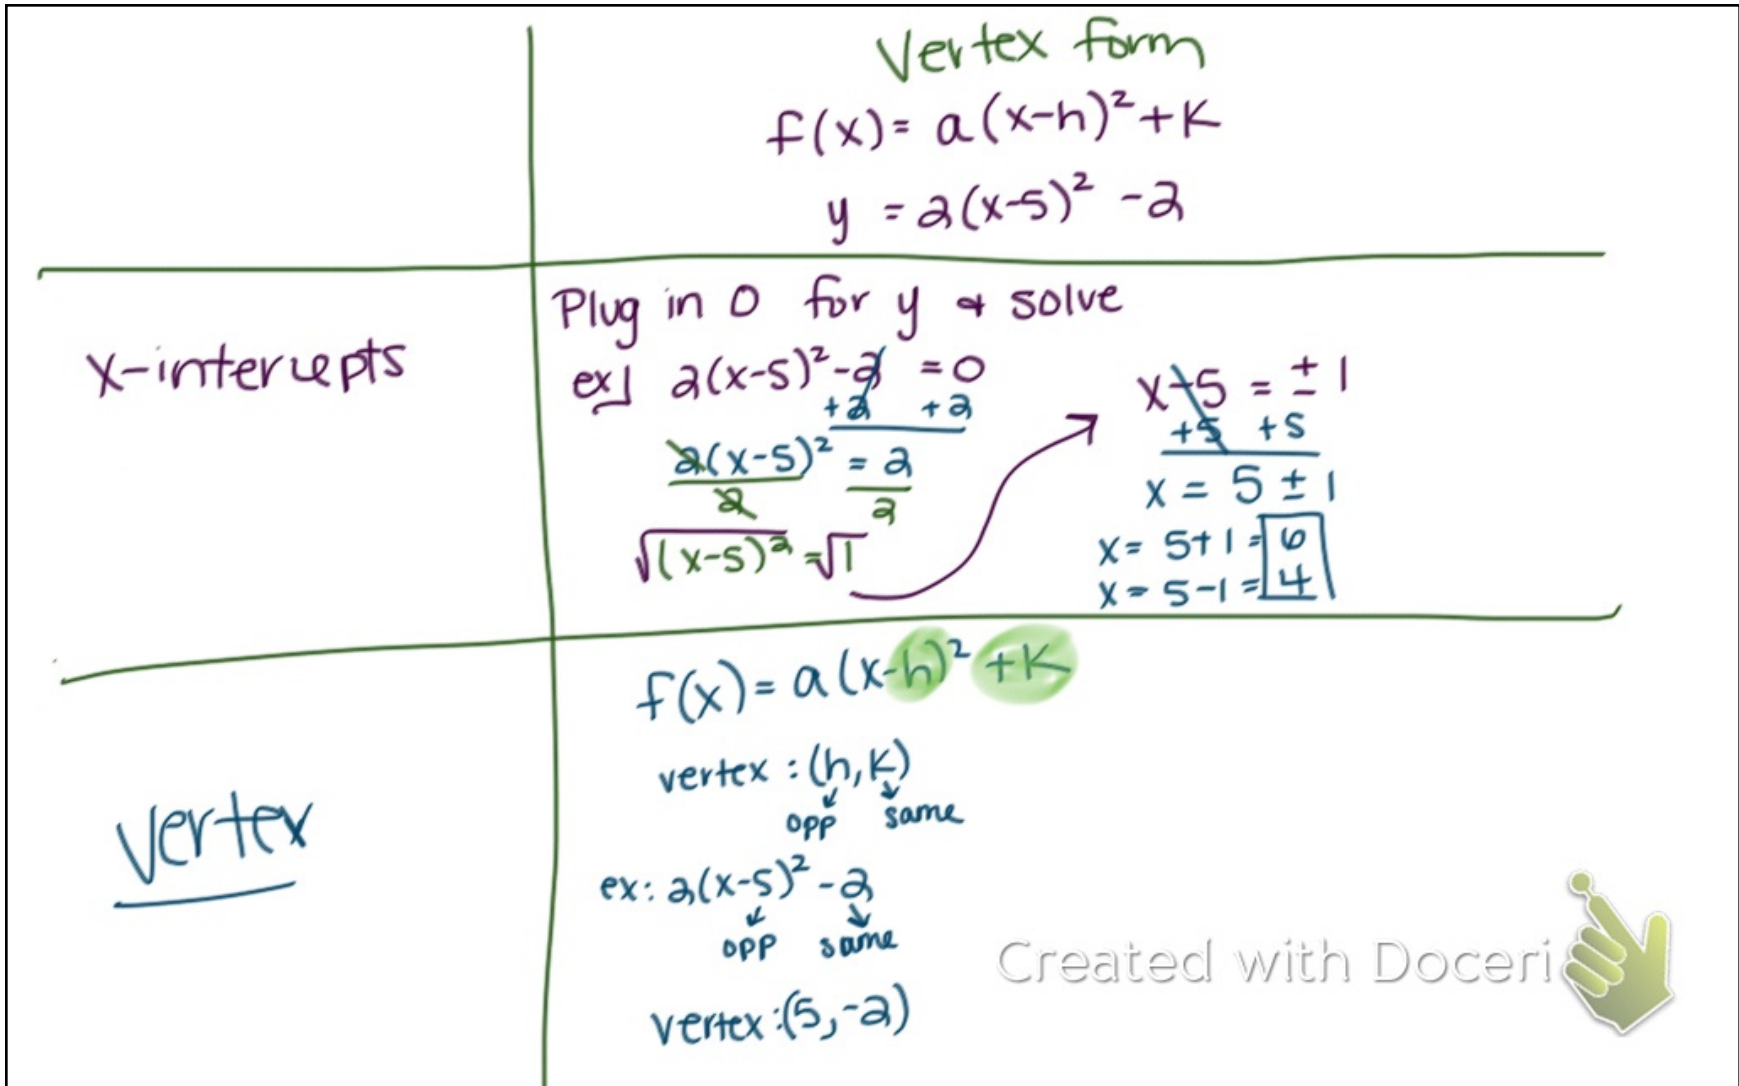 Vertex form
f(x) = a(x-h)² + K
y = 2(x-5)² -2
x-intercepts
Plug in 0 for y & solve
ex] 2(x-5)² -2 = 0
+2 +2
2(x-5)² = 2
2 2
√(x-5)² = √1
x-5 = ± 1
+5 +5
x = 5 ± 1
x = 5+1 = 6
x = 5-1 = 4
Vertex
f(x) = a(x-h)² +K
vertex : (h,K)
opp same
ex: 2(x-5)² -2
opp same
vertex :(5,-2)
Created with Doceri